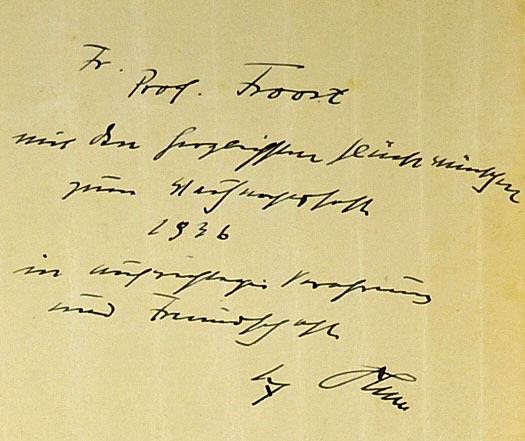 Fr. Prof. Troost
mit den herzlichsten Glückwünschen
zum Weihnachtsfest
1936
in aufrichtiger Verehrung
und Freundschaft